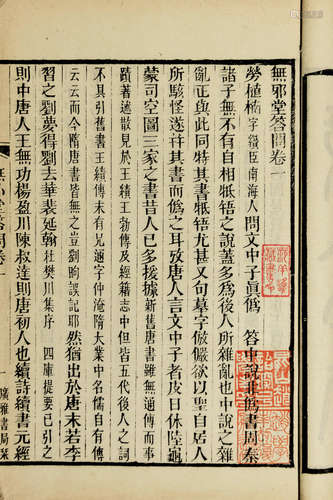 無邪堂答問卷一
勞植楠字㵧臣南海人問文中子眞僞 答中說非僞書周秦
諸子無不有自相牴牾之說蓋多爲後人所雜亂也中說之雜
亂正與此同特其書牴牾尤甚又句摹字倣儼欲以聖自居人
所駭怪遂幷其書而僞之耳攷唐人言文中子者皮日休陸龜
蒙司空圖三家之書昔人已多援據新舊唐書雖無通傳而事
蹟著述散見於王績王勃傳及經籍志中但皆五代後人之詞
不具引舊書王績傳末有兄通字仲淹隋大業中名儒自有傳
云云而今隋唐書皆無之豈劉昫誤記耶然猶出於唐末若李
習之劉夢得劉去華裴延翰杜樊川集序四庫提要已引之
則中唐人王無功楊盈川陳叔達則唐初人也續詩續書元經
無邪堂答問卷一
一
廣雅書局栞